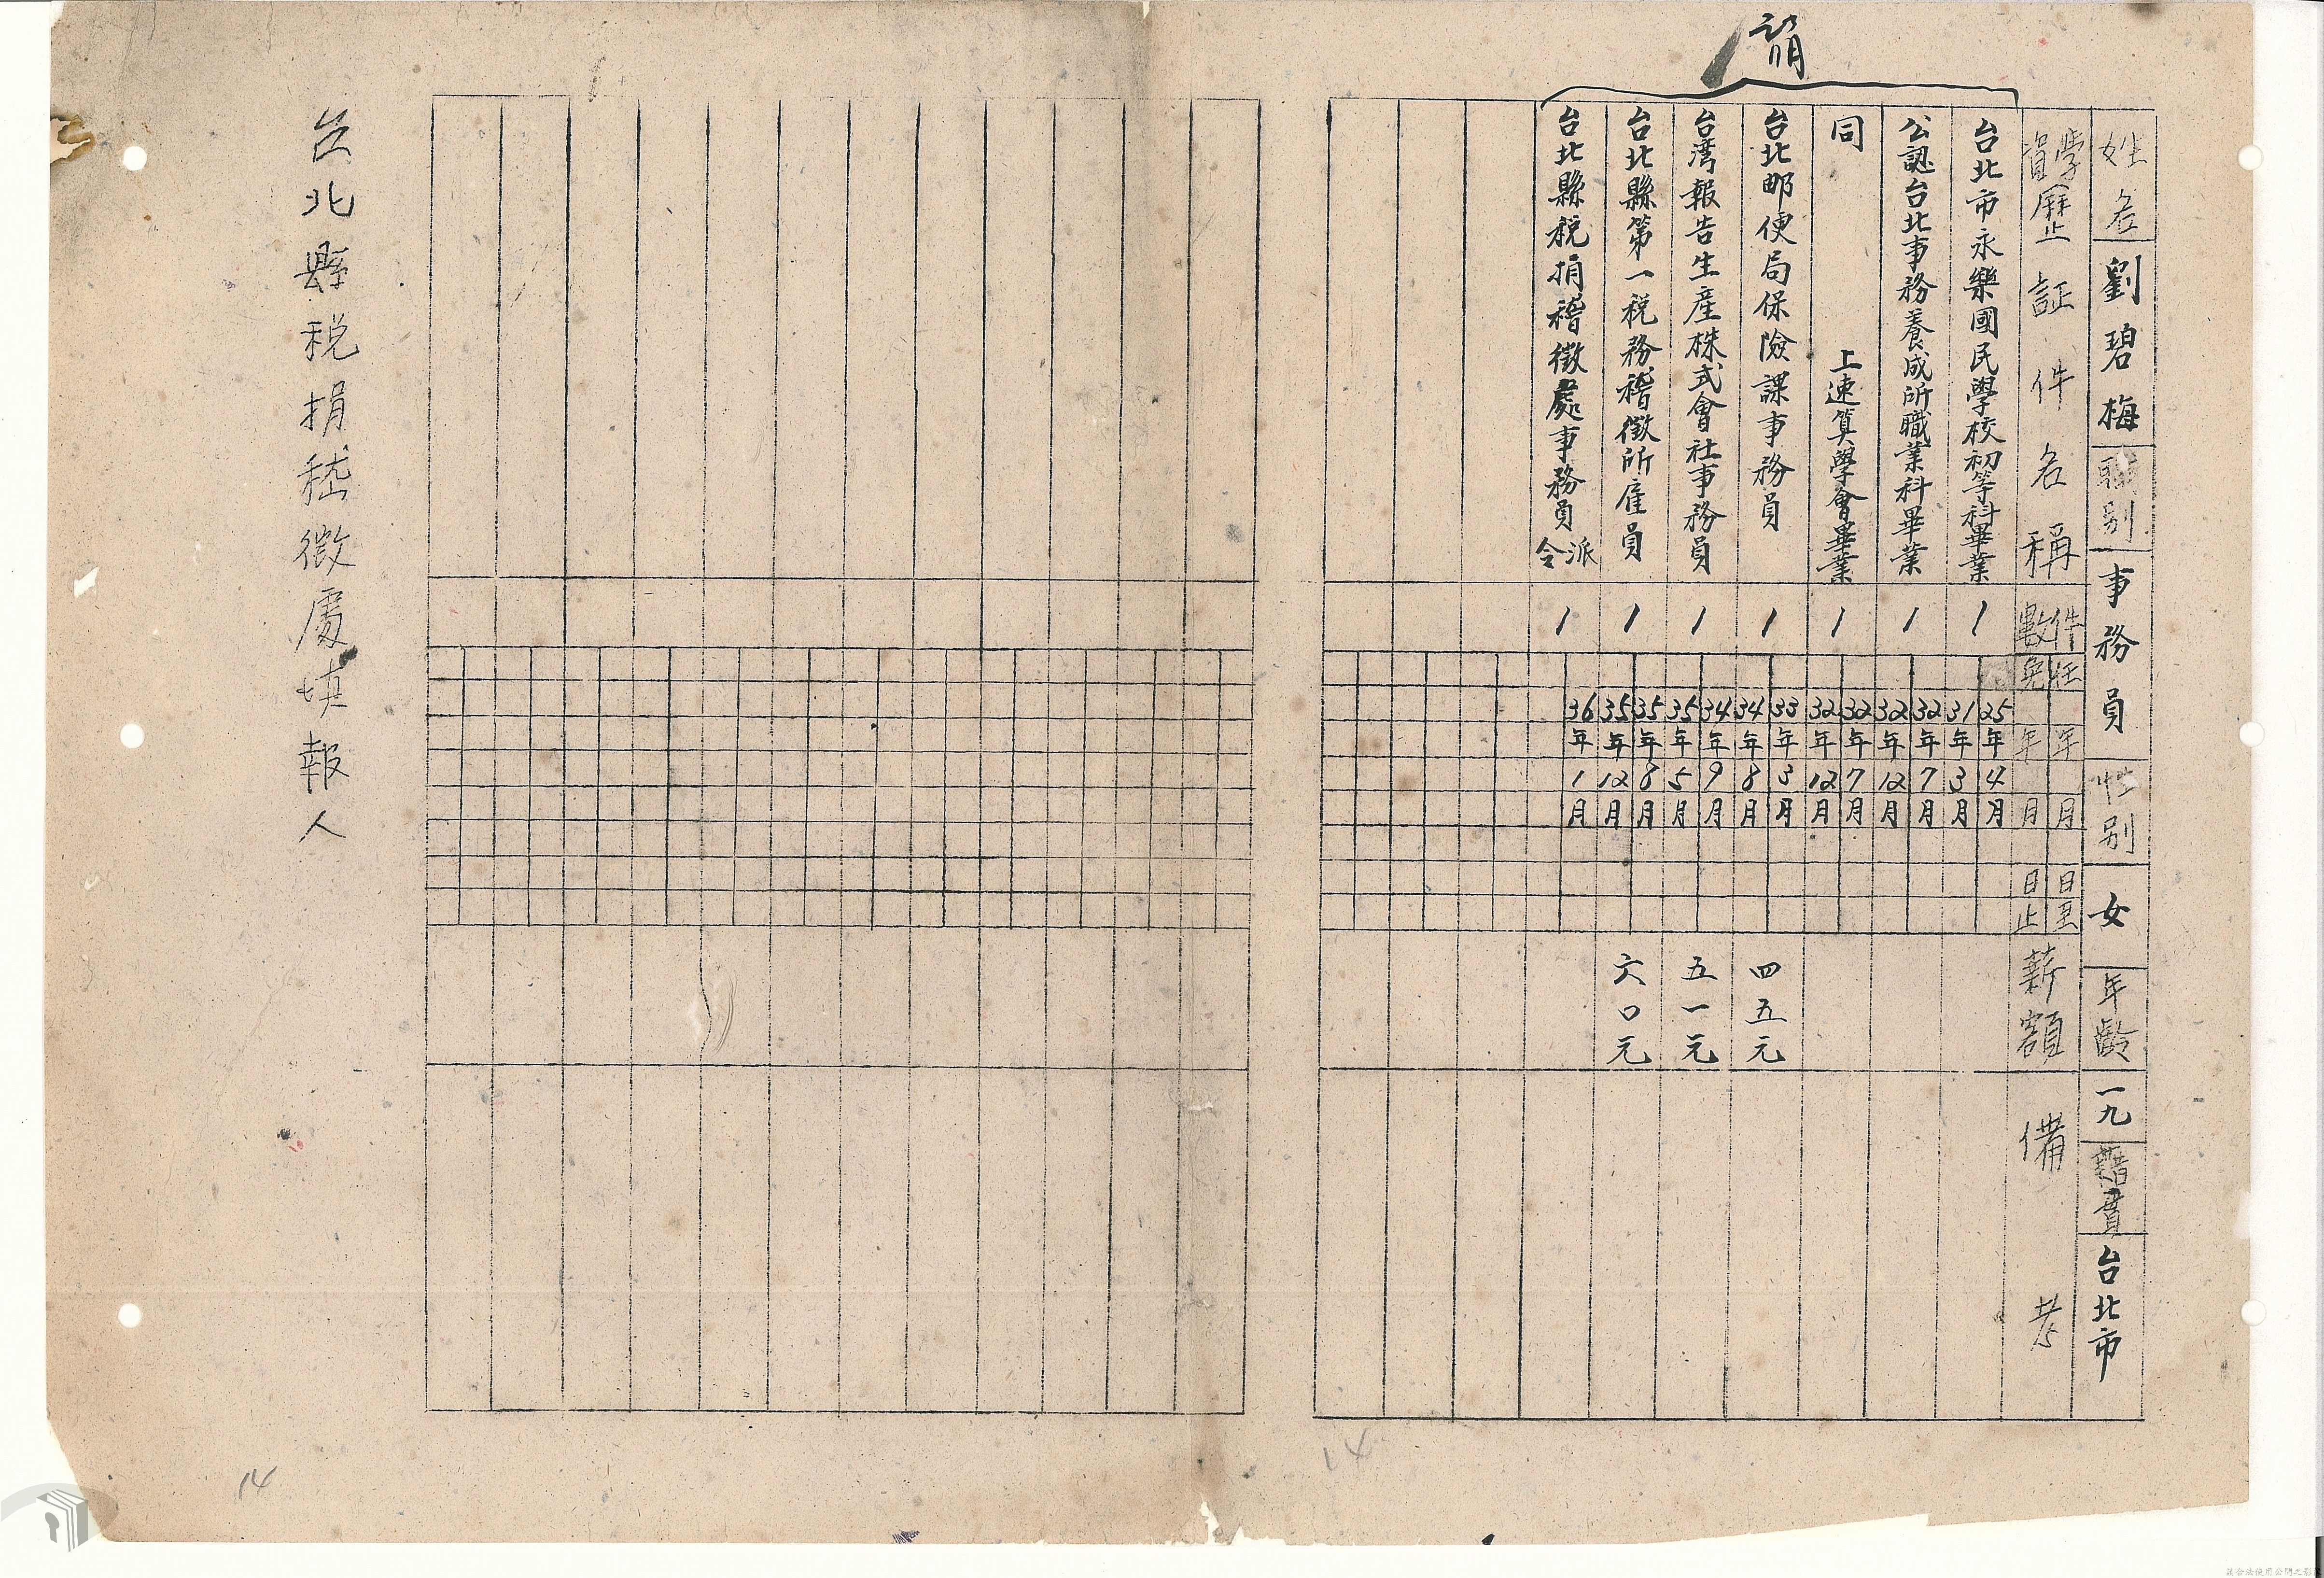 姓名 劉碧梅 職別 事務員 性別 女 年齡 一九 籍貫 台北市
學歷資証件名稱 件數 任免 年 年 月 月 日至 日止 薪額 備考
台北市永樂國民學校初等科畢業 1 25年4月 31年3月
公認台北事務養成所職業科畢業 1 32年7月 32年12月
同 上速算學會畢業 1 32年7月 32年12月
台北郵便局保險課事務員 1 33年3月 34年8月 四五元
台灣報告生產株式會社事務員 1 34年9月 35年5月 五一元
台北縣第一税務稽徵所雇員 1 35年8月 35年12月 六〇元
台北縣税捐稽徵處事務員派令 1 36年1月
台北縣税捐嵇徵處填報人
14
14
請合法使用公開之影